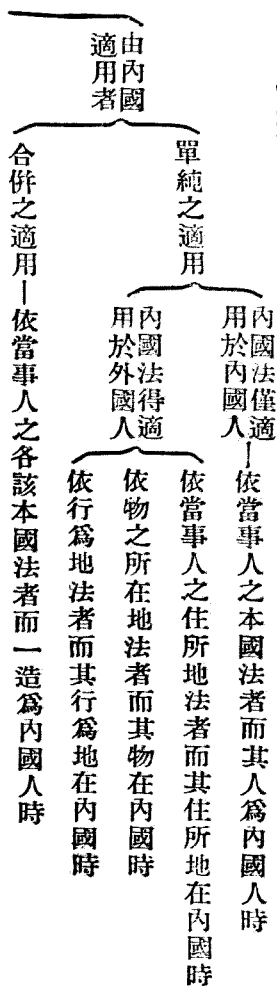 由內國
適用者
單純之適用
內國法僅適
用於內國人
依當事人之本國法者而其人爲內國人時
內國法得適
用於外國人
依當事人之住所地法者而其住所地在內國時
依物之所在地法者而其物在內國時
依行爲地法者而其行爲地在內國時
合併之適用—依當事人之各該本國法者而一造爲內國人時